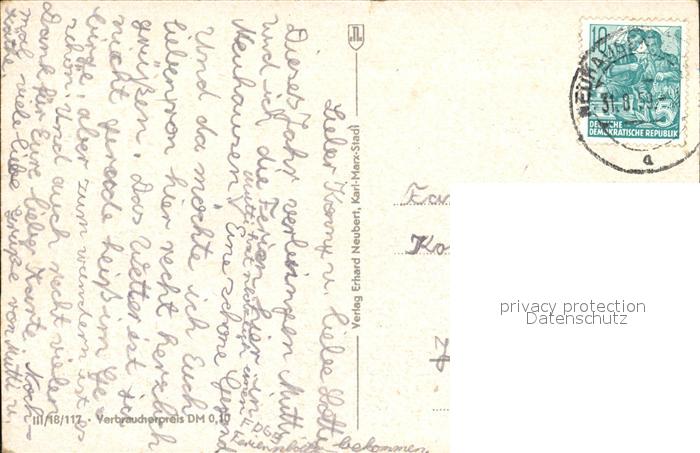 Lieber Konny u. liebe Lotte
Dieses Jahr verbringen Mutti
und ich die Ferien hier in
Neuhausen. Eine schöne Gegend
Mutti hat nämlich einen FDGB
Ferienscheck bekommen.
Und da möchte ich Euch
Lieben von hier recht herzlich
grüßen. Das Wetter ist ja
nicht gerade heiß im Ge-
birge, aber zum wandern ist es
schön. Und auch recht vielen
Dank für Eure liebe Karte. Noch-
mals viele liebe Grüße von Mutti u.
III/18/117 • Verbraucherpreis DM 0,10
Verlag Erhard Neubert, Karl-Marx-Stadt
10
5
DEUTSCHE
DEMOKRATISCHE REPUBLIK
31.8.59
a
Fam
Ko
privacy protection
Datenschutz